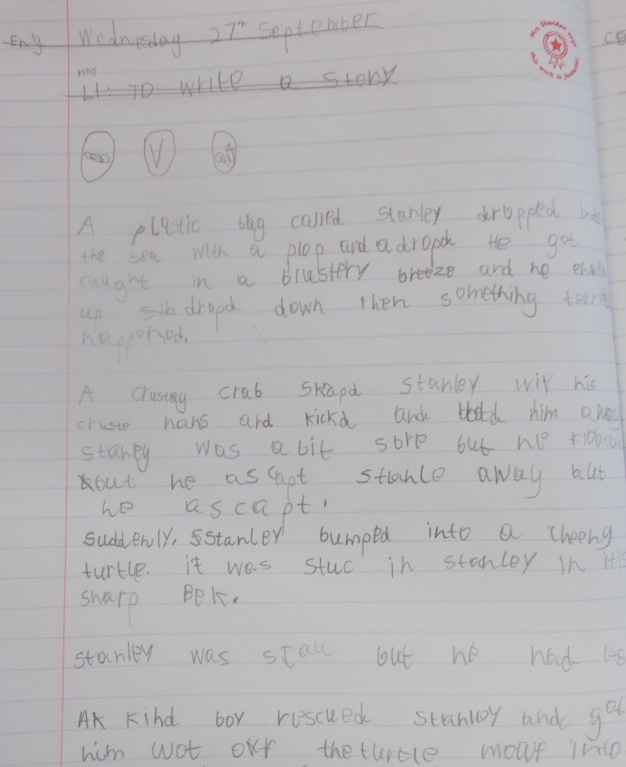 Eng Wednesday 27th September
LI: To write a story
V
adj
A plastic bag called Stanley dropped into
the sea with a plop and a dropd He got
caught in a blustery breeze and he
up dropd down then something
happoned.
A crustay crab Snapd Stanley wiv his
hans and kickd and him
stanley was a bit sore but he
but he ascapt away but
he ascapt.
Suddenly, SStanley bumped into a
turtle. it was stuc in stanley in His
sharp BEK.
Stanley was but he had
AK Kind boy rescued Stanley and got
him wot off the turtle moaf into